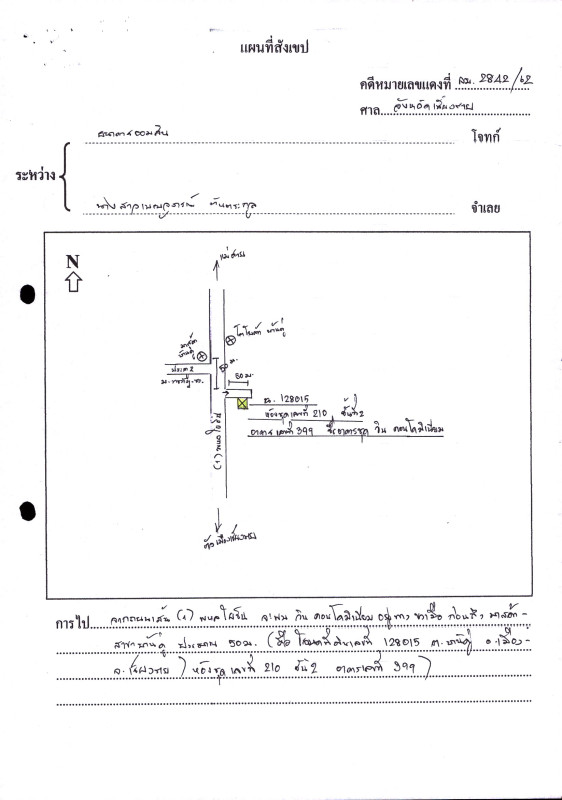 แผนที่สังเขป
คดีหมายเลขแดงที่ ผบ. 2842/62
ศาล จังหวัดเชียงราย
ธนาคารออมสิน โจทก์
ระหว่าง
นางสาวเบญจภรณ์ จำเลย
N
แม่สาย
โตโยต้า บ้านดู่
มาสด้า
บ้านดู่
ประตู 2
ม.ราชภัฏ ชร.
50 ม.
50 ม.
ฉ. 128015
ห้องชุดเลขที่ 210 ชั้นที่ 2
อาคารเลขที่ 399 ชื่ออาคารชุด วิน คอนโดมิเนียม
(1) พหลโยธิน
ตัวเมืองเชียงราย
การไป จากถนนเส้น (1) พหลโยธิน จะพบ วิน คอนโดมิเนียม อยู่ทาง ขวามือ ก่อนถึง มาสด้า -
สาขาบ้านดู่ ประมาณ 50 ม. ( โฉนดที่ดินเลขที่ 128015 ต.บ้านดู่ อ.เมือง-
จ.เชียงราย ) ห้องชุดเลขที่ 210 ชั้น 2 อาคารเลขที่ 399 )